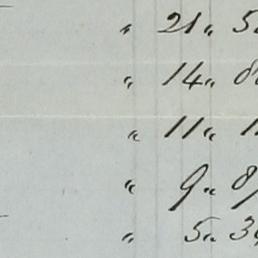 " 21 " 5
" 14 "
" 11 " 1
" 9 "
" 5 " 3